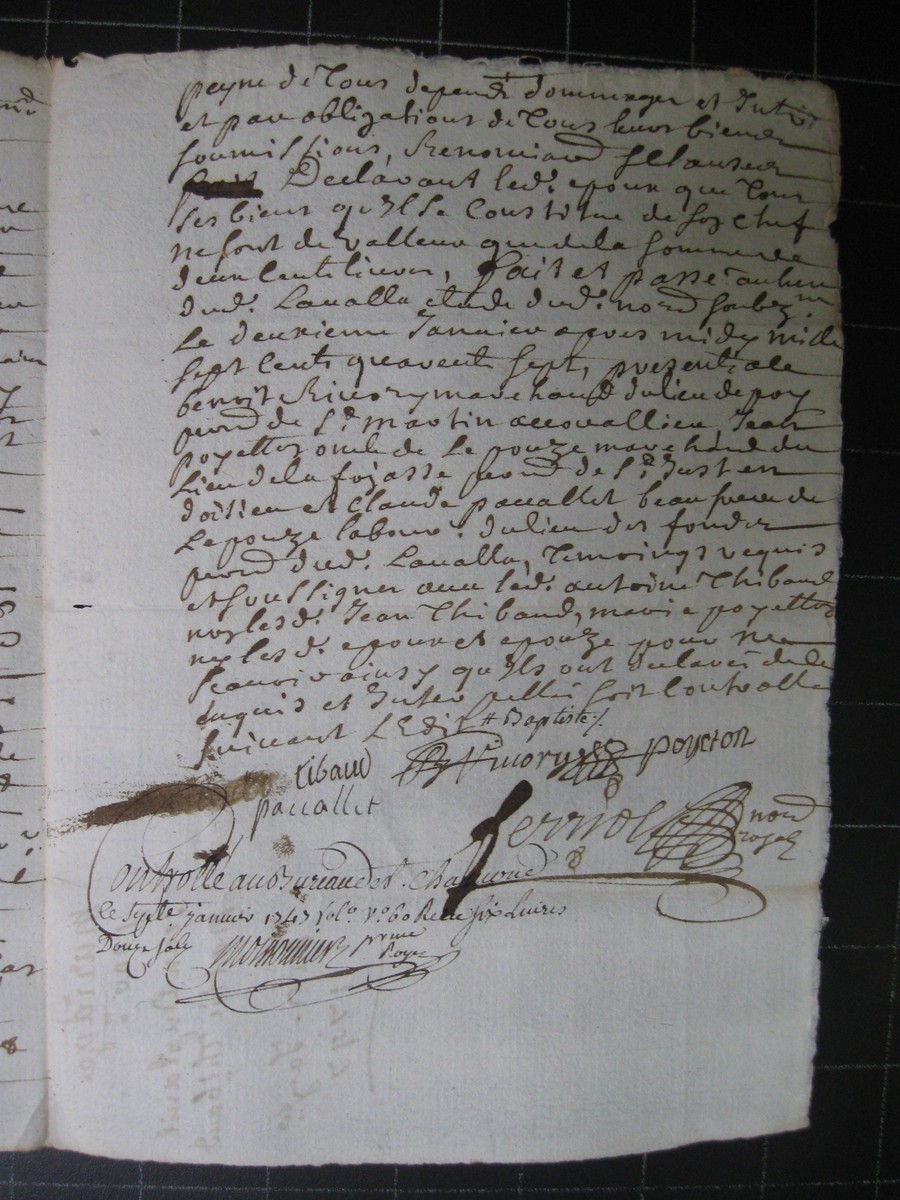 peyne de tous depends dommages et Inter
et par obligations de tous leurs biens
soumissions, Renonciaon Et Clauses
Declarant led. epoux que tous
ses biens qu'il se Constitue de son chef
ne sont de valleur que de la somme de
deux Cents livres, fait et passé au lieu
dud. Lavalla etude dud. nore soubz.né
Le deuxieme Janvier apres midy mille
sept Cents quarente sept, presents a ce
benoit marchand du lieu de
parsse de St martin acouallieu Jean
poyetton oncle de Le pouze marchand du
Lieu de la fojasse parsse de St Just en
doitieu et Claude pacallet beau frere de
Le pouze labour. du lieu des fonds
parsse dud. Lavalla, temoings requis
et soussignes avec led. antoine Thibaud
non led. Jean Thibaud, marie poyetton
ny lesd. epoux et epouze pour ne
scavoir ainsy qu'ils ont declarés de ce
enquis et Interpellés soit Controllé
suivant L'Edit # Baptiste /.
tibaud poyeton
pacallet
ferriol nore
royal
Controllé au Bureau de St. Chamond
le Septe janvier 1747 vol. Vo 60 Reçu six Livres
Douze sols